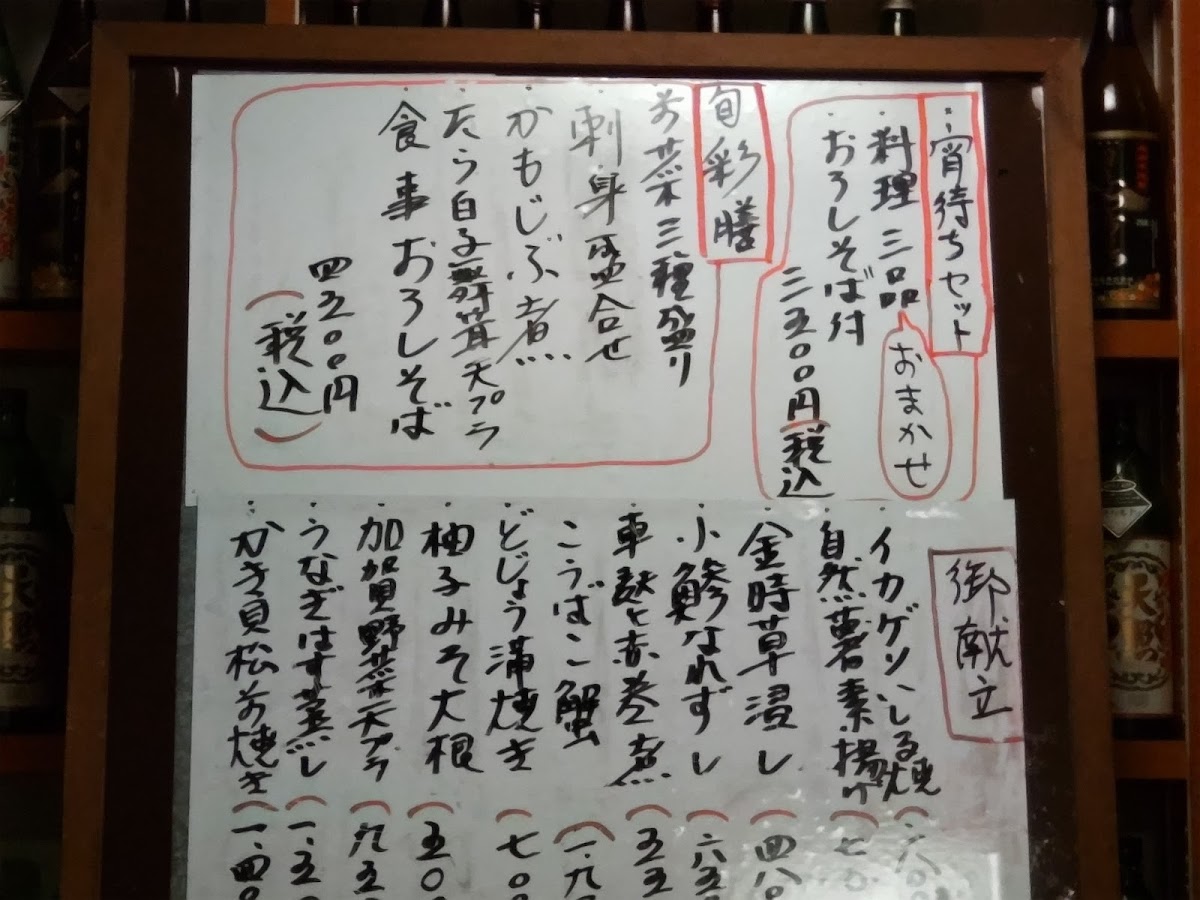 宵待ちセット
料理三品
おまかせ
おろしそば付
三五〇〇円(税込
旬彩膳
お菜三種盛り
刺身盛合せ
かもじぶ煮
たら白子舞茸天プラ
食事おろしそば
四五〇〇円
(税込)
御献立
イカゲソいしる焼(八〇〇
自然薯素揚げ(七〇
金時草浸し(四八〇
小鯵なれずし(六五
車麸と赤巻煮(五五
こうばこ蟹(一.九
どじょう蒲焼き(七〇〇
柚子みそ大根(五〇
加賀野菜天プラ(九五
うなぎはす蒸し(一.五
かき貝松前焼き(一.四〇